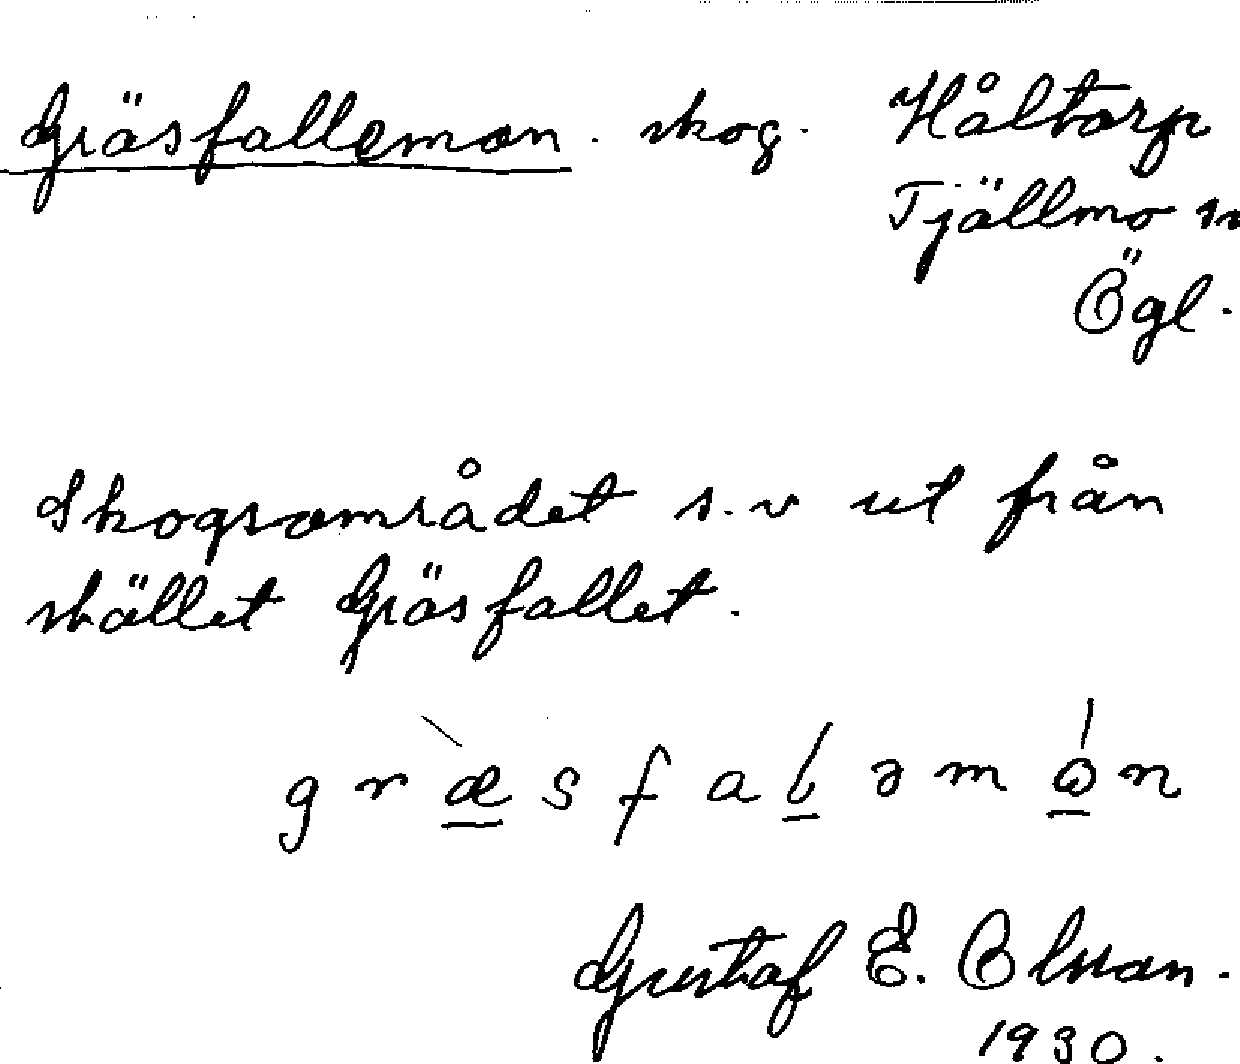 Gräsfallemon. skog. Håltorp
Tjällmo sn
Ögl.
Skogsområdet s.v ut från
skället Gräsfallet.
græsfalәmωn
Gustaf E. Olsson.
1930.